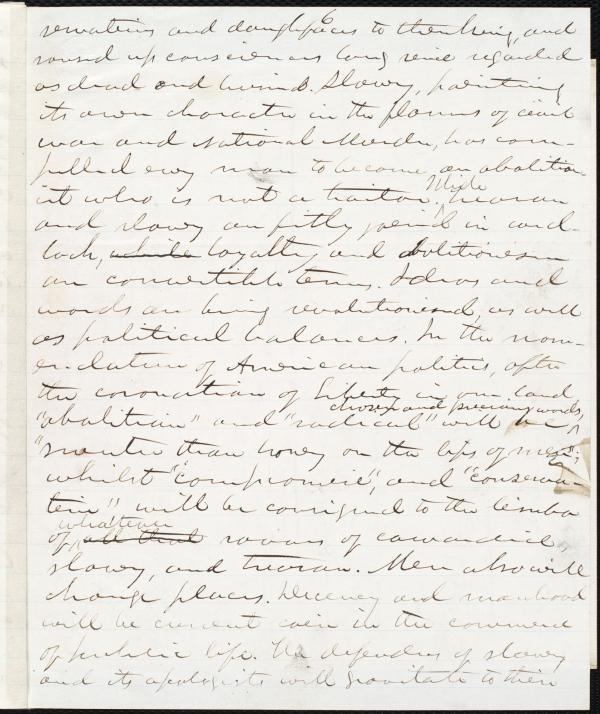 servatives and doughfaces to thinking, and
roused up consciences long since regarded
as dead and buried. Slavery, painting
its own character in the flames of civil
war and National Murder, has com-
pelled every man to become an abolition-
ist who is not a traitor. While treason
and slavery are fitly joined in wed-
lock, while loyalty and abolitionism
are convertible terms. Ideas and
words are being revolutionized, as well
as political balances. In the nom-
enclature of American politics, after
the coronation of Liberty in our land
"abolition" and "radical" will be chosen and precious words,
"sweeter than honey on the lips of men";
whilst "compromise", and "conserva-
tism" will be consigned to the limbo
of all that whatever savors of cowardice,
slavery, and treason. Men also will
change places. Decency and manhood
will be current coin in the commerce
of public life. The defenders of slavery
and its apologists will gravitate to their